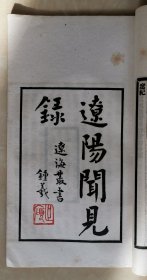 遼陽聞見
錄
遼海叢書
鍾羲